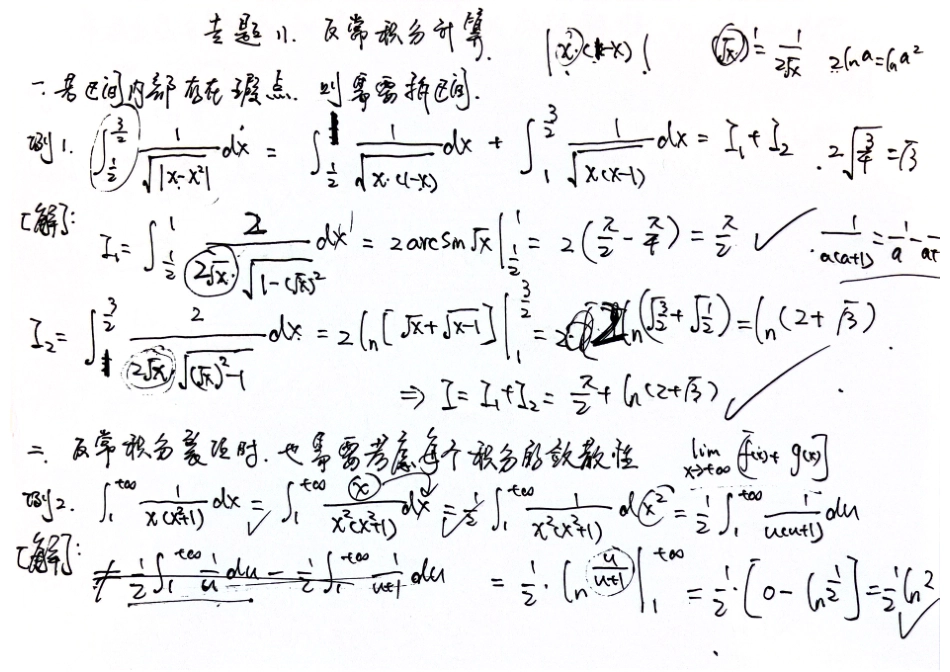 专题11. 反常积分计算.
|x·(1-x)| (√x)' = 1/(2√x) 2ln a = ln a²
一. 若区间内部存在瑕点. 则需要拆区间.
例1. ∫_{1/2}^{3/2} 1/√|x-x²| dx = ∫_{1/2}^{1} 1/√(x·(1-x)) dx + ∫_{1}^{3/2} 1/√(x(x-1)) dx = I₁ + I₂ . 2√(3/4) = √3
[解]: I₁ = ∫_{1/2}^{1} 2/(2√x·√(1-(√x)²)) dx = 2arcsin√x |_{1/2}^{1} = 2(π/2 - π/4) = π/2 ✓ 1/(a(a+1)) = 1/a - 1/(a+
I₂ = ∫_{1}^{3/2} 2/(2√x √((√x)²-1)) dx = 2ln[√x+√(x-1)] |_{1}^{3/2} = 2ln(√(3/2)+√(1/2)) = ln(2+√3)
⇒ I = I₁+I₂ = π/2 + ln(2+√3) ✓
二. 反常积分裂项时. 也需要考虑每个积分的敛散性 lim_{x→+∞} [f(x)+g(x)]
例2. ∫_{1}^{+∞} 1/(x(x²+1)) dx = ∫_{1}^{+∞} x/(x²(x²+1)) dx = 1/2 ∫_{1}^{+∞} 1/(x²(x²+1)) dx² = 1/2 ∫_{1}^{+∞} 1/(u(u+1)) du
[解]: ≠ 1/2 ∫_{1}^{+∞} 1/u du - 1/2 ∫_{1}^{+∞} 1/(u+1) du = 1/2 · ln u/(u+1) |_{1}^{+∞} = 1/2 · [0 - ln 1/2] = 1/2 ln 2 ✓